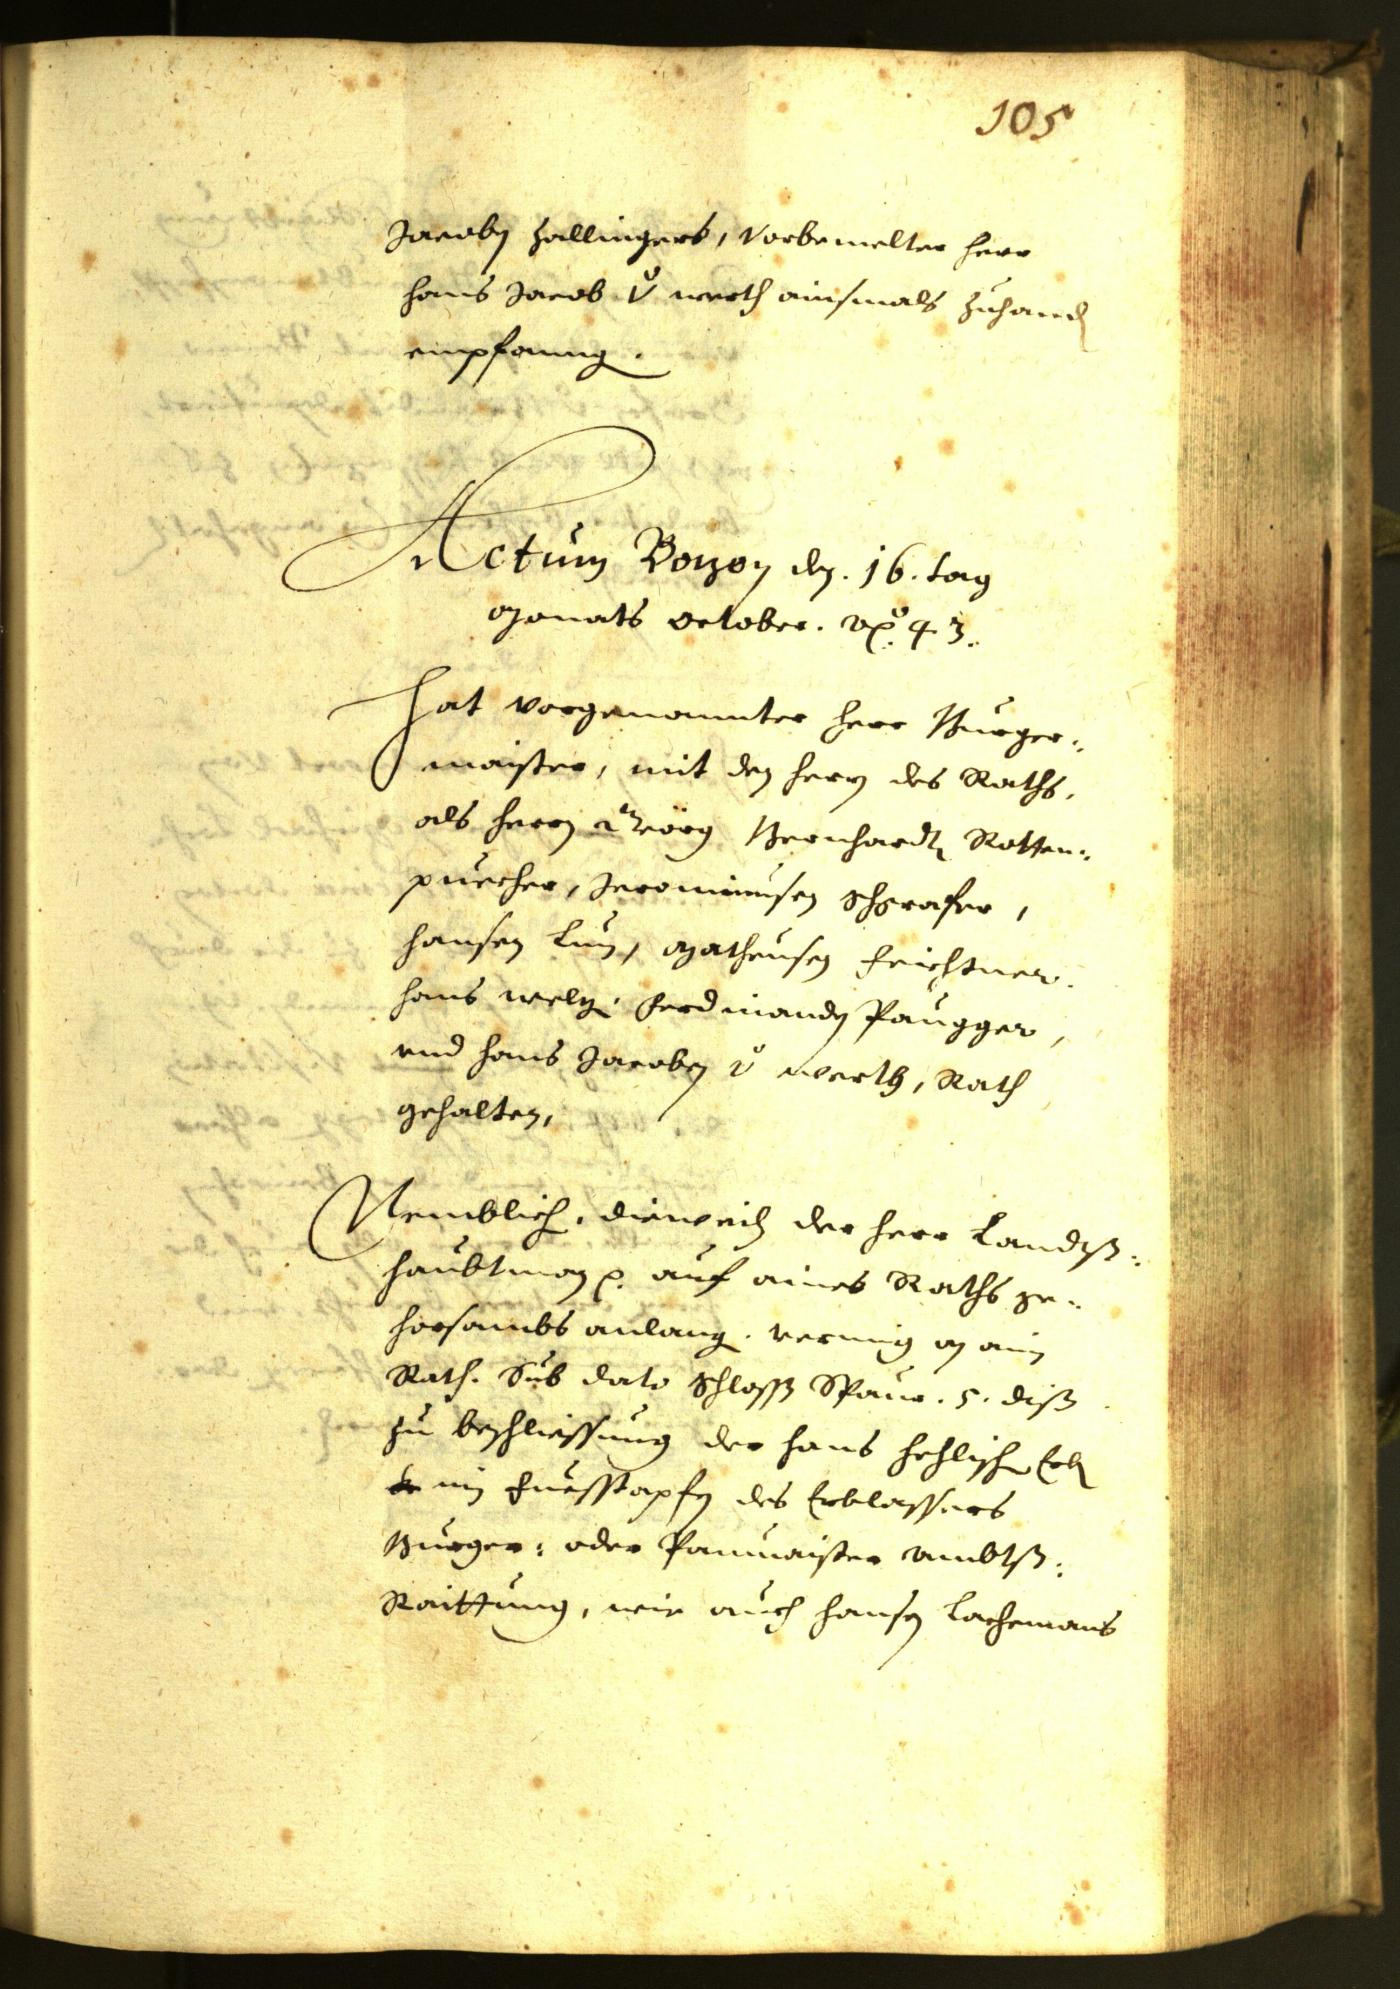 105
Jacoben Zallingers, vorbemelter herr
hans Jacob v werth ainsmals zuhand
empfanng.
Actum Bozen den. 16. tag
Monats October. 43.
Hat vorgenannter herr Burger-
maister, mit den herrn des Raths,
als herrn Geörg Bernhardt Rotten-
puecher, Jeronimusen Schgrafer,
hansen Lun, Matheusen Feichtner.
hans welz. Ferdinanden Paugger,
vnd hans Jacoben v werth, Rath
gehalten,
Nemblich, dieweil der herr Landtß-
haubtman auf aines Raths ge-
horsambs anlang. an ain
Rath. Sub dato Schloss Spaur. 5. diß
zu beschliessung der hans
in fuesstapfen des Erblassers
Burger- oder Paumaister ambtß-
Raittung, wie auch hansen Lachemans